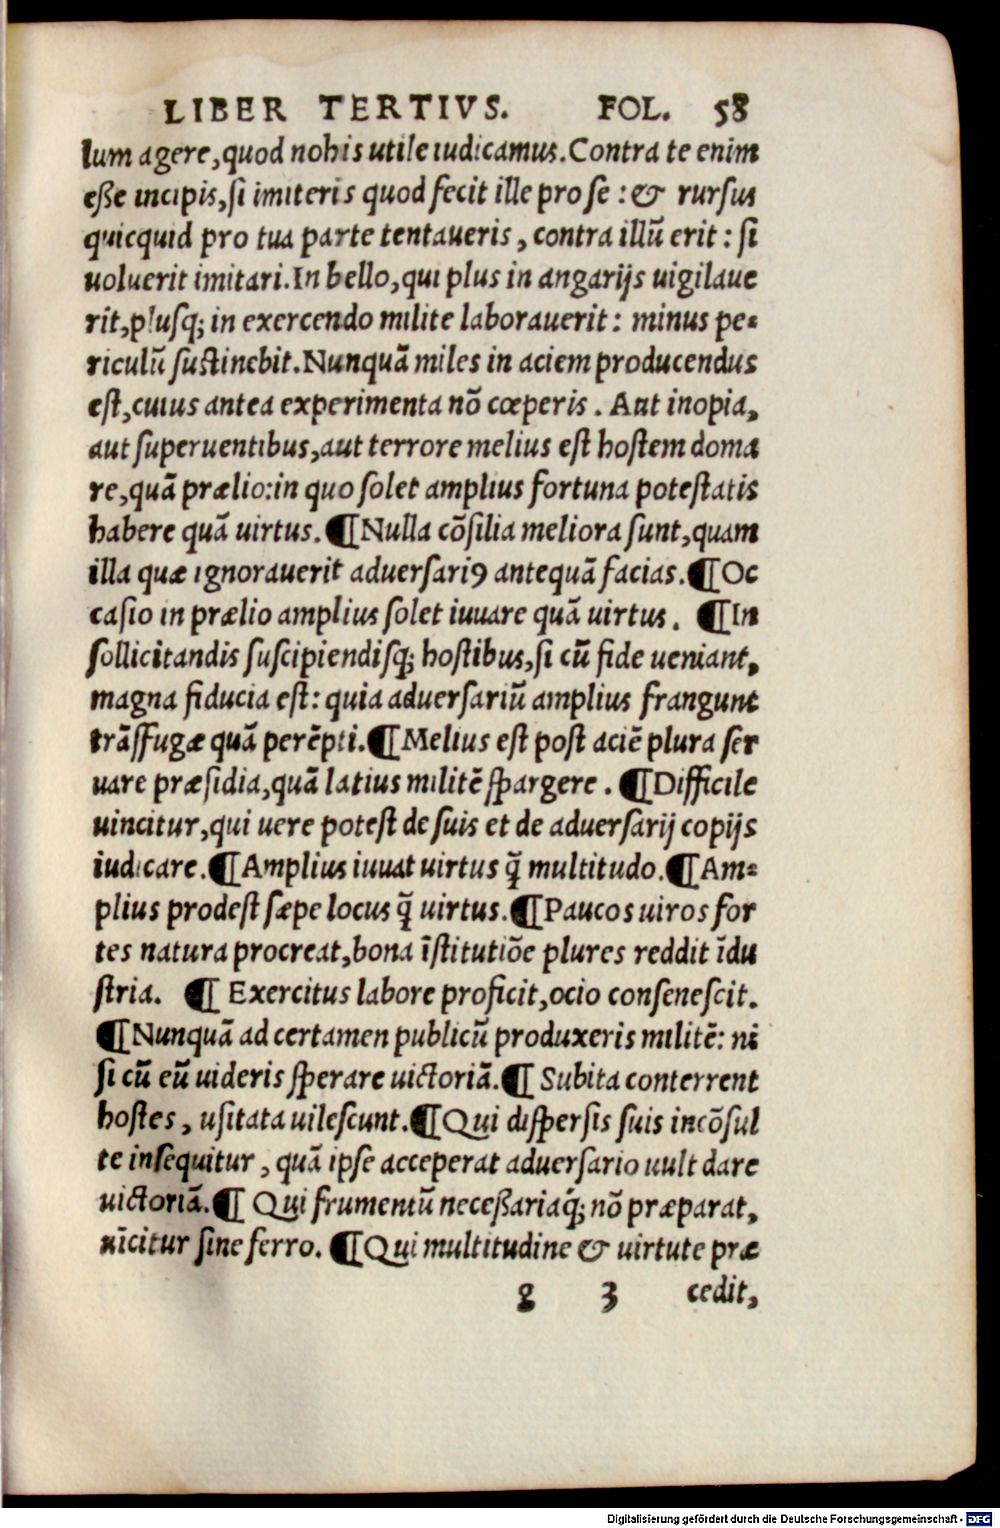 LIBER TERTIVS. FOL. 58
lum agere, quod nobis utile iudicamus. Contra te enim
eße incipis, ſi imiteris quod fecit ille pro ſe : & rurſus
quicquid pro tua parte tentaueris, contra illũ erit : ſi
uoluerit imitari. In bello, qui plus in angarijs uigilaue
rit, pluſq; in exercendo milite laborauerit : minus pe⸗
riculũ ſuſtinebit. Nunquã miles in aciem producendus
eſt, cuius antea experimenta nõ cœperis. Aut inopia,
aut ſuperuentibus, aut terrore melius eſt hoſtem doma
re, quã prælio: in quo ſolet amplius fortuna poteſtatis
habere quã uirtus. ¶ Nulla cõſilia meliora ſunt, quam
illa quæ ignorauerit aduerſariꝯ antequã facias. ¶ Oc
caſio in prælio amplius ſolet iuuare quã uirtus. ¶ In
ſollicitandis ſuſcipiendiſq; hoſtibus, ſi cũ fide ueniant,
magna fiducia eſt: quia aduerſariũ amplius frangunt
trãſfugæ quã perẽpti. ¶ Melius eſt poſt aciẽ plura ſer
uare præſidia, quã latius militẽ ſpargere. ¶ Difficile
uincitur, qui uere poteſt de ſuis et de aduerſarij copijs
iudicare. ¶ Amplius iuuat uirtus q̃ multitudo. ¶ Am⸗
plius prodeſt ſæpe locus q̃ uirtus. ¶ Paucos uiros for
tes natura procreat, bona ĩſtitutiõe plures reddit ĩdu
ſtria. ¶ Exercitus labore proficit, ocio conſeneſcit.
¶ Nunquã ad certamen publicũ produxeris militẽ: ni
ſi cũ eũ uideris ſperare uictoriã. ¶ Subita conterrent
hoſtes, uſitata uileſcunt. ¶ Qui diſperſis ſuis incõſul
te inſequitur, quã ipſe acceperat aduerſario uult dare
uictoriã. ¶ Qui frumentũ neceßariaq́; nõ præparat,
uĩcitur ſine ferro. ¶ Qui multitudine & uirtute præ
g 3 cedit,
Digitalisierung gefördert durch die Deutsche Forschungsgemeinschaft - DFG